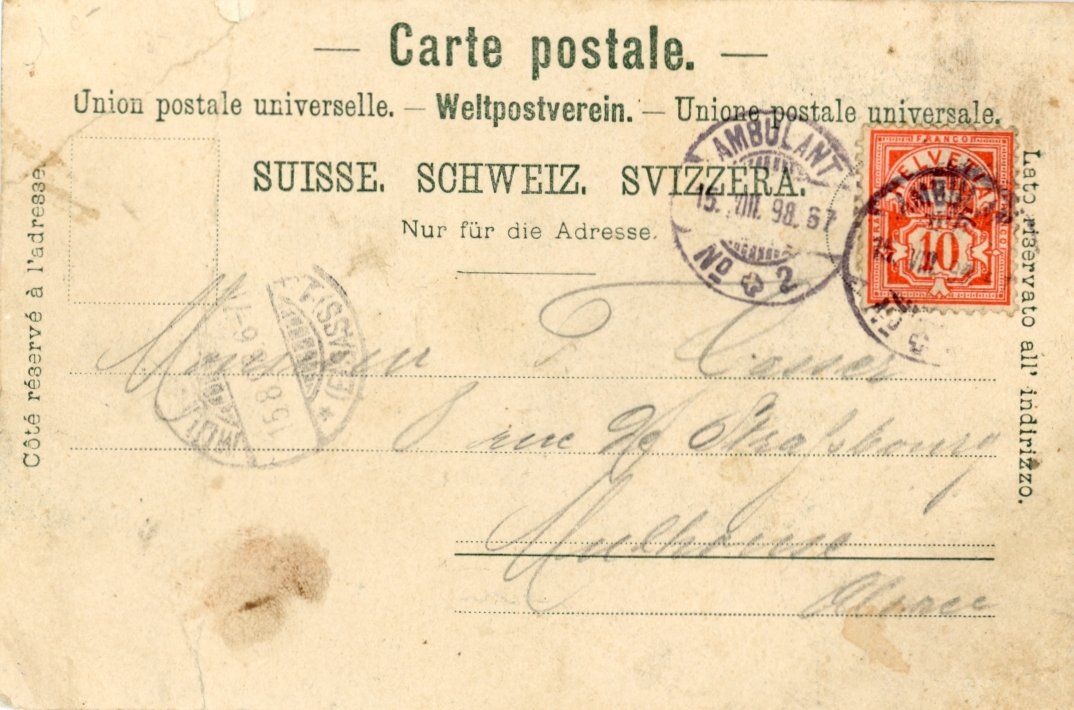 — Carte postale. —
Union postale universelle. — Weltpostverein. — Unione postale universale.
SUISSE. SCHWEIZ. SVIZZERA.
Nur für die Adresse.
Côté réservé à l'adresse
Lato riservato all' indirizzo.
AMBULANT
15. VIII. 98. 67
No 2
FRANCO
HELVETIA
10
AMBULANT
15. VIII
No
(ELSASS) 1
15 8 98 6-7
Monsieur F.
8 rue de Strasbourg
Mulhouse
Alsace